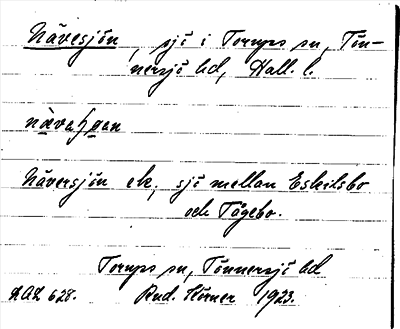 Nävesjön, sjö i Torups sn, Tön-
nersjö hd, Hall. l.
Näversjön ek., sjö mellan Eskilsbo
och Tågebo.
Torups sn, Tönnersjö hd
Rud. 1923.